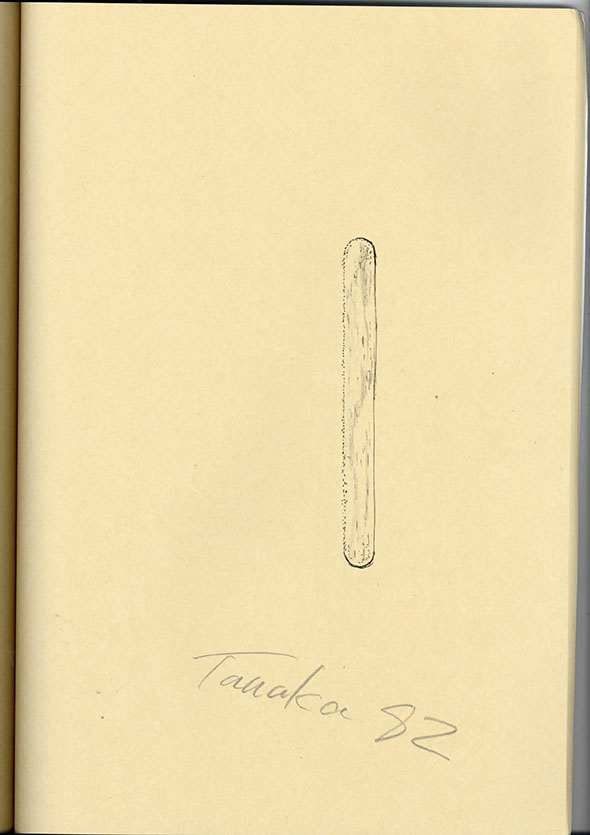 Tanaka 82